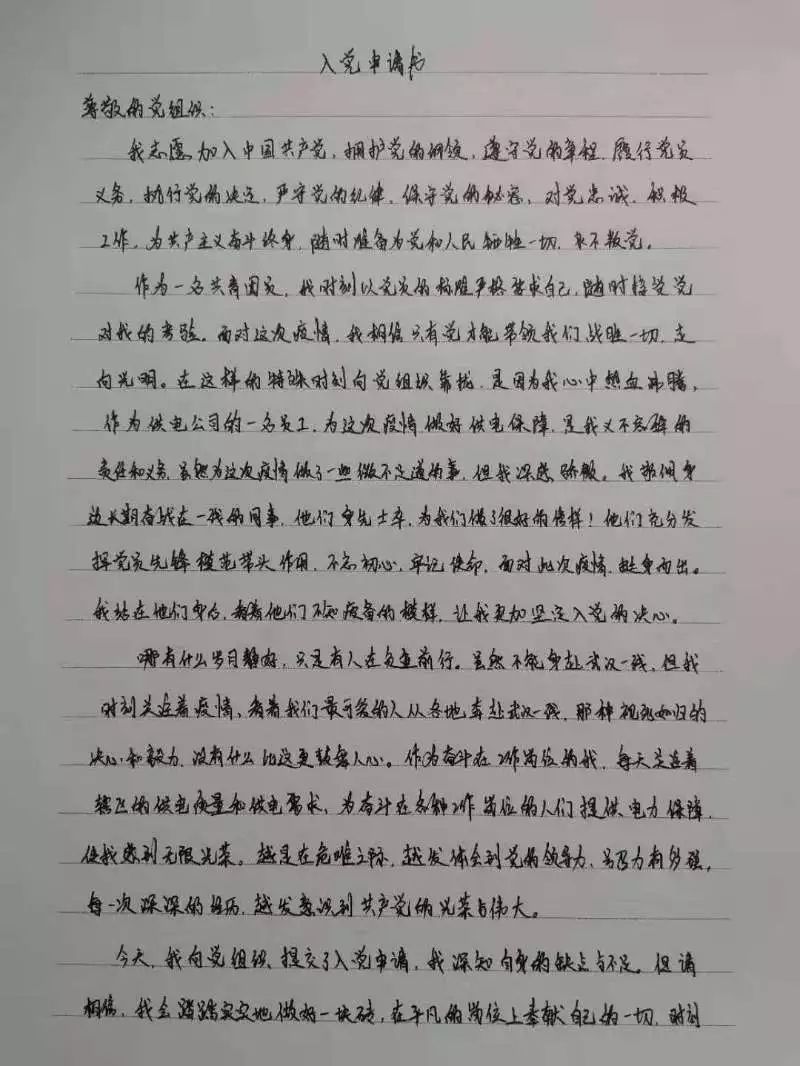 入党申请书
尊敬的党组织：
我志愿加入中国共产党，拥护党的纲领，遵守党的章程，履行党员
义务，执行党的决定，严守党的纪律，保守党的秘密，对党忠诚，积极
工作，为共产主义奋斗终身，随时准备为党和人民牺牲一切，永不叛党。
作为一名共青团员，我时刻以党员的标准严格要求自己，随时接受党
对我的考验。面对这次疫情，我相信只有党才能带领我们战胜一切，走
向光明。在这样的特殊时刻向党组织靠拢，是因为我心中热血沸腾，
作为供电公司的一名员工，为这次疫情做好供电保障，是我义不容辞的
责任和义务，虽然为这次疫情做了一些微不足道的事，但我深感骄傲。我敬佩身
边长期奋战在一线的同事，他们身先士卒，为我们做了很好的榜样！他们充分发
挥党员先锋模范带头作用，不忘初心，牢记使命，面对此次疫情，挺身而出。
我站在他们身后，看着他们不知疲惫的模样，让我更加坚定入党的决心。
哪有什么岁月静好，只是有人在负重前行。虽然不能身赴武汉一线，但我
时刻关注着疫情，看着我们最可爱的人从各地奔赴武汉一线，那种视死如归的
决心和毅力，没有什么比这更鼓舞人心。作为奋斗在工作岗位的我，每天关注着
辖区的供电质量和供电需求，为奋斗在各种工作岗位的人们提供电力保障，
使我感到无限光荣。越是在危难之际，越发体会到党的领导力，号召力有多强，
每一次深深的经历，越发意识到共产党的光荣与伟大。
今天，我向党组织提交了入党申请，我深知自身的缺点与不足。但请
相信，我会踏踏实实地做好一块砖，在平凡的岗位上奉献自己的一切，时刻